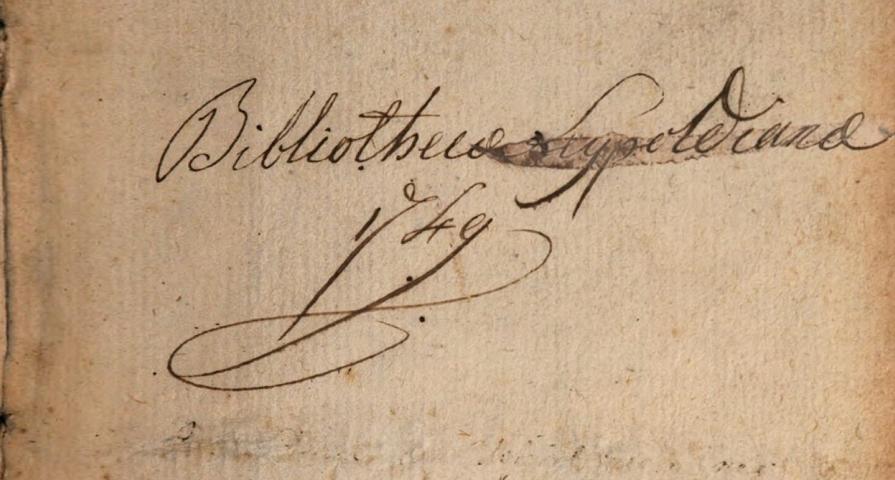 Bibliotheca Lypoldiana
1749